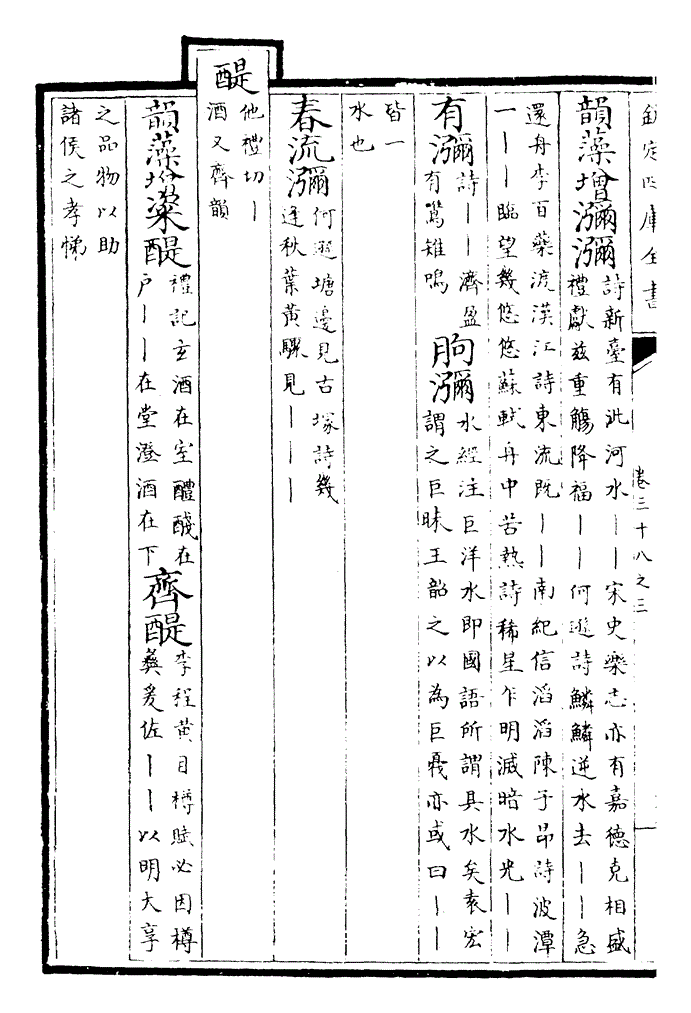 欽定四庫全書
卷三十八之三
韻藻增瀰瀰
詩新臺有泚河水丨丨宋史樂志亦有嘉德克相盛
禮獻兹重觴降福丨丨何遜詩鱗鱗逆水去丨丨急
還舟李百藥渡漢江詩東流既丨丨南紀信滔滔陳子昻詩波潭
一丨丨臨望幾悠悠蘇軾舟中苦熱詩稀星乍明滅暗水光丨丨
有瀰
詩丨丨濟盈
有鷕雉鳴
朐瀰
水經注巨洋水即國語所謂具水矣袁宏
謂之巨昧王韶之以為巨蔑亦或曰丨丨
皆一
水也
春流瀰
何遜塘邊見古塚詩幾
逢秋葉黄驟見丨丨丨
醍
他禮切丨
酒又齊韻
韻藻增粢醍
禮記玄酒在室醴醆在
户丨丨在堂澄酒在下
齊醍
李程黄目樽賦必因樽
彝爰佐丨丨以明大享
之品物以助
諸侯之孝悌